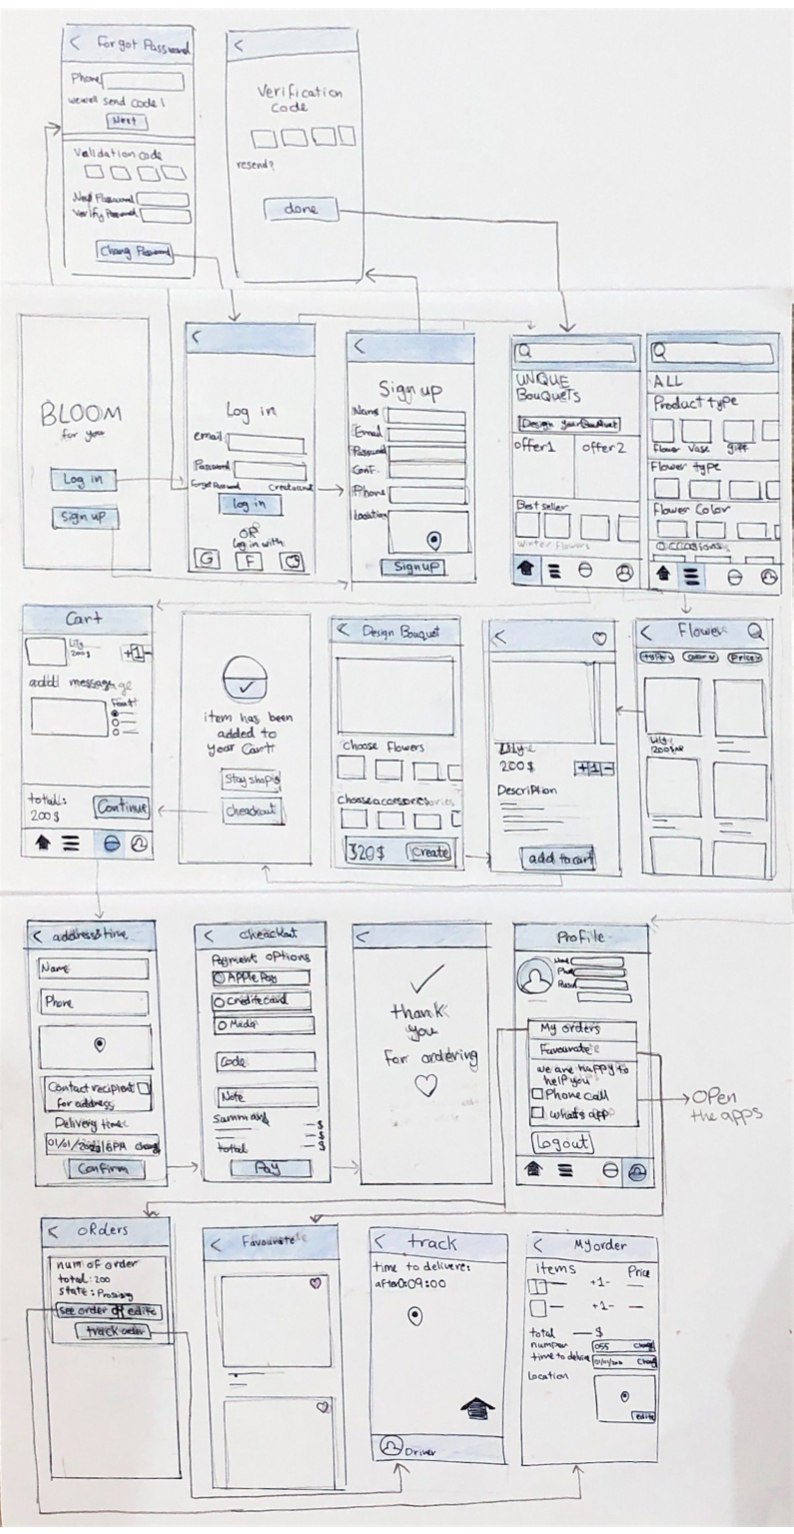 < Forgot Password
Phone
we well send code!
Next
Validation code
New Password
Verify Password
Chang Password
<
Verification
code
resend?
done
BLOOM
for you
Log in
Sign up
<
Log in
email
Password
Forget Password Creat account
Log in
OR
Log in with
G F
<
Sign up
Name
Email
Password
Conf.
Phone
location
Sign up
UNQUE
BouqueTs
Design your Bouquet
offer1 offer 2
Best seller
winter flowers
ALL
Product type
flower Vase gift
Flower type
Flower Color
occasions
Cart
Lily
200$ +1-
add message
Font
total:
200$ Continue
item has been
added to
your Cart
Stay shoping
cheackout
< Design Bouquet
choose flowers
Choose accessories
320$ Create
<
Lily
200$ +1-
Description
add to cart
< Flower
type v Color v Price v
Lily
< address & time
Name
Phone
Contact recipient
for address
Delivery time:
6PM chang
Confirm
< cheackout
Payment options
APPle Pay
Credite card
Mada
Code
Note
Summary
$
$
total $
Pay
<
thank
you
for ordering
Profile
My orders
Favourate
we are happy to
help you
Phone call
what's app
Logout
OPen
the apps
< oRders
num of order
total: 200
state: Prossing
see order or edite
track order
< Favourate
< track
time to delivere:
after 0:09:00
Driver
< My order
items Price
+1-
+1-
total $
number 055 Chang
time to delive Chang
Location
edite